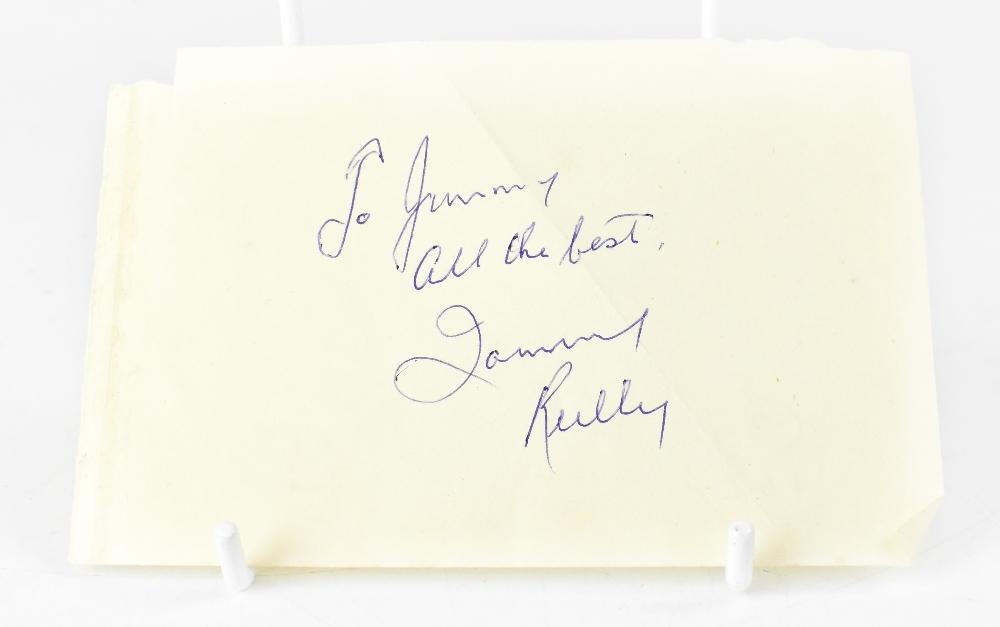 To Jimmy
all the best.
Tommy
Reilly